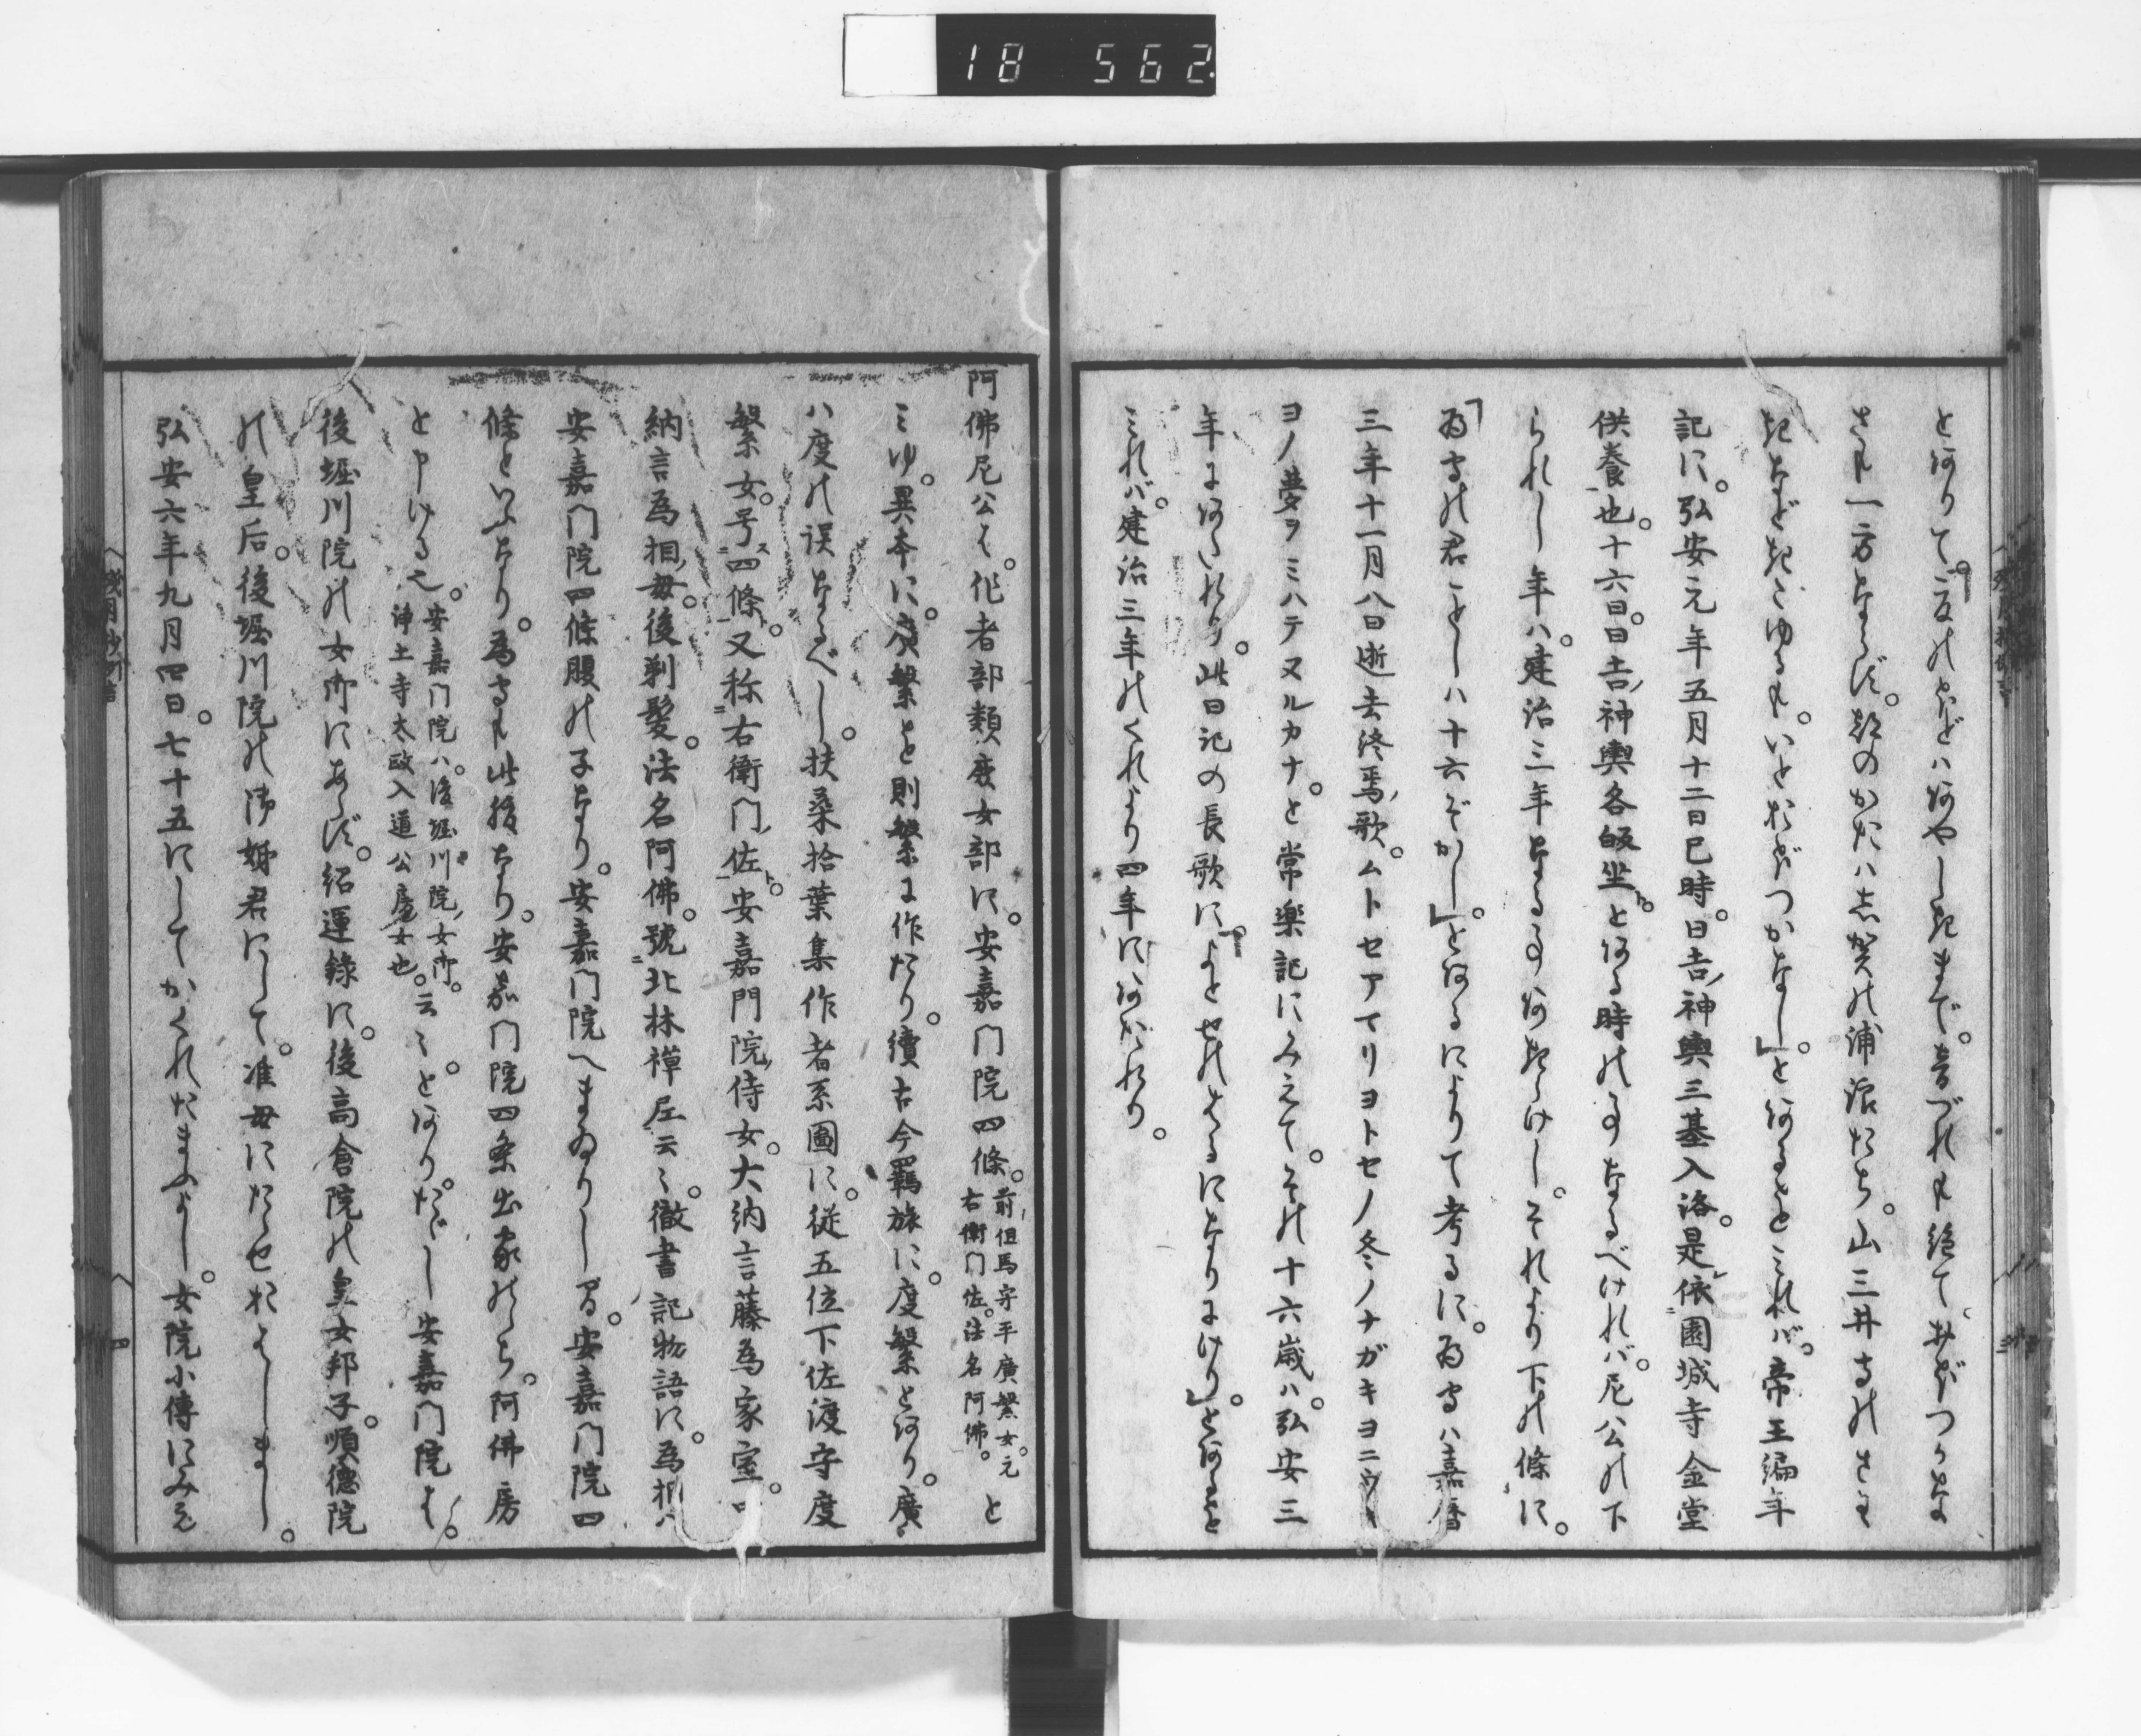 18 562
とありて。「夏のほどはあやしきまで。音づれも絶て、おぼつかな
さも一方ならず。都のかたハ志賀の浦浪たち。山三井寺のさわ
ぎなどきこゆるも。いとおぼつかなし」。とあるをとみれバ。帝王編年
記に。弘安元年五月十二日巳時。日吉神輿三基入洛。是依園城寺金堂
供養也。十六日。日吉神輿各皈坐。とある時の事なるべけれバ。尼公の下
られし年ハ。建治三年なる事あきらけし。それより下の條に。
「為守の君ことしハ十六ぞかし」。とあるによりて考るに。為守ハ嘉暦
三年十一月八日逝去終焉歌。ムトセアマリヨトセノ冬ノナガキヨニウキ
ヨノ夢ヲミハテヌルカナ。と常楽記にみえて。その十六歳ハ。弘安三
年にあたれり。此日記の長歌に。「よとせのはるになりにけり」。とあるを
みれバ。建治三年のくれより四年にあたれり。
阿佛尼公は。作者部類庶女部に。安嘉门院四條。前但馬守平廣繁女。元右衛门佐。法名阿佛。と
ミゆ。異本に。度繁とを則繁に作たり。續古今羈旅に。度繁とあり。廣
ハ度の誤なるべし。扶桑拾葉集作者系圖に。従五位下佐渡守度
繁女。号四條。又称右衛门佐。安嘉門院侍女。大納言藤為家室。中
納言為相母。後剃髪。法名阿佛。號北林禅尼云々。徹書記物語に。為相ハ
安嘉门院四條腹の子なり。安嘉门院へまゐりし間。安嘉门院四
條といふなり。為守も此後なり。安嘉门院四条出家のゝち。阿佛房
と申ける也。安嘉门院ハ。後堀川院女御。浄土寺太政入道公房女也。云々。とあり。たゞし安嘉门院は。
後堀川院の女御にあらず。紹運錄に。後高倉院の皇女邦子。順德院
の皇后。後堀川院の御姉君にして。准母にたゝせおはしまし。
弘安六年九月四日。七十五にしてかくれたまふよし。女院小傳にみえ
四